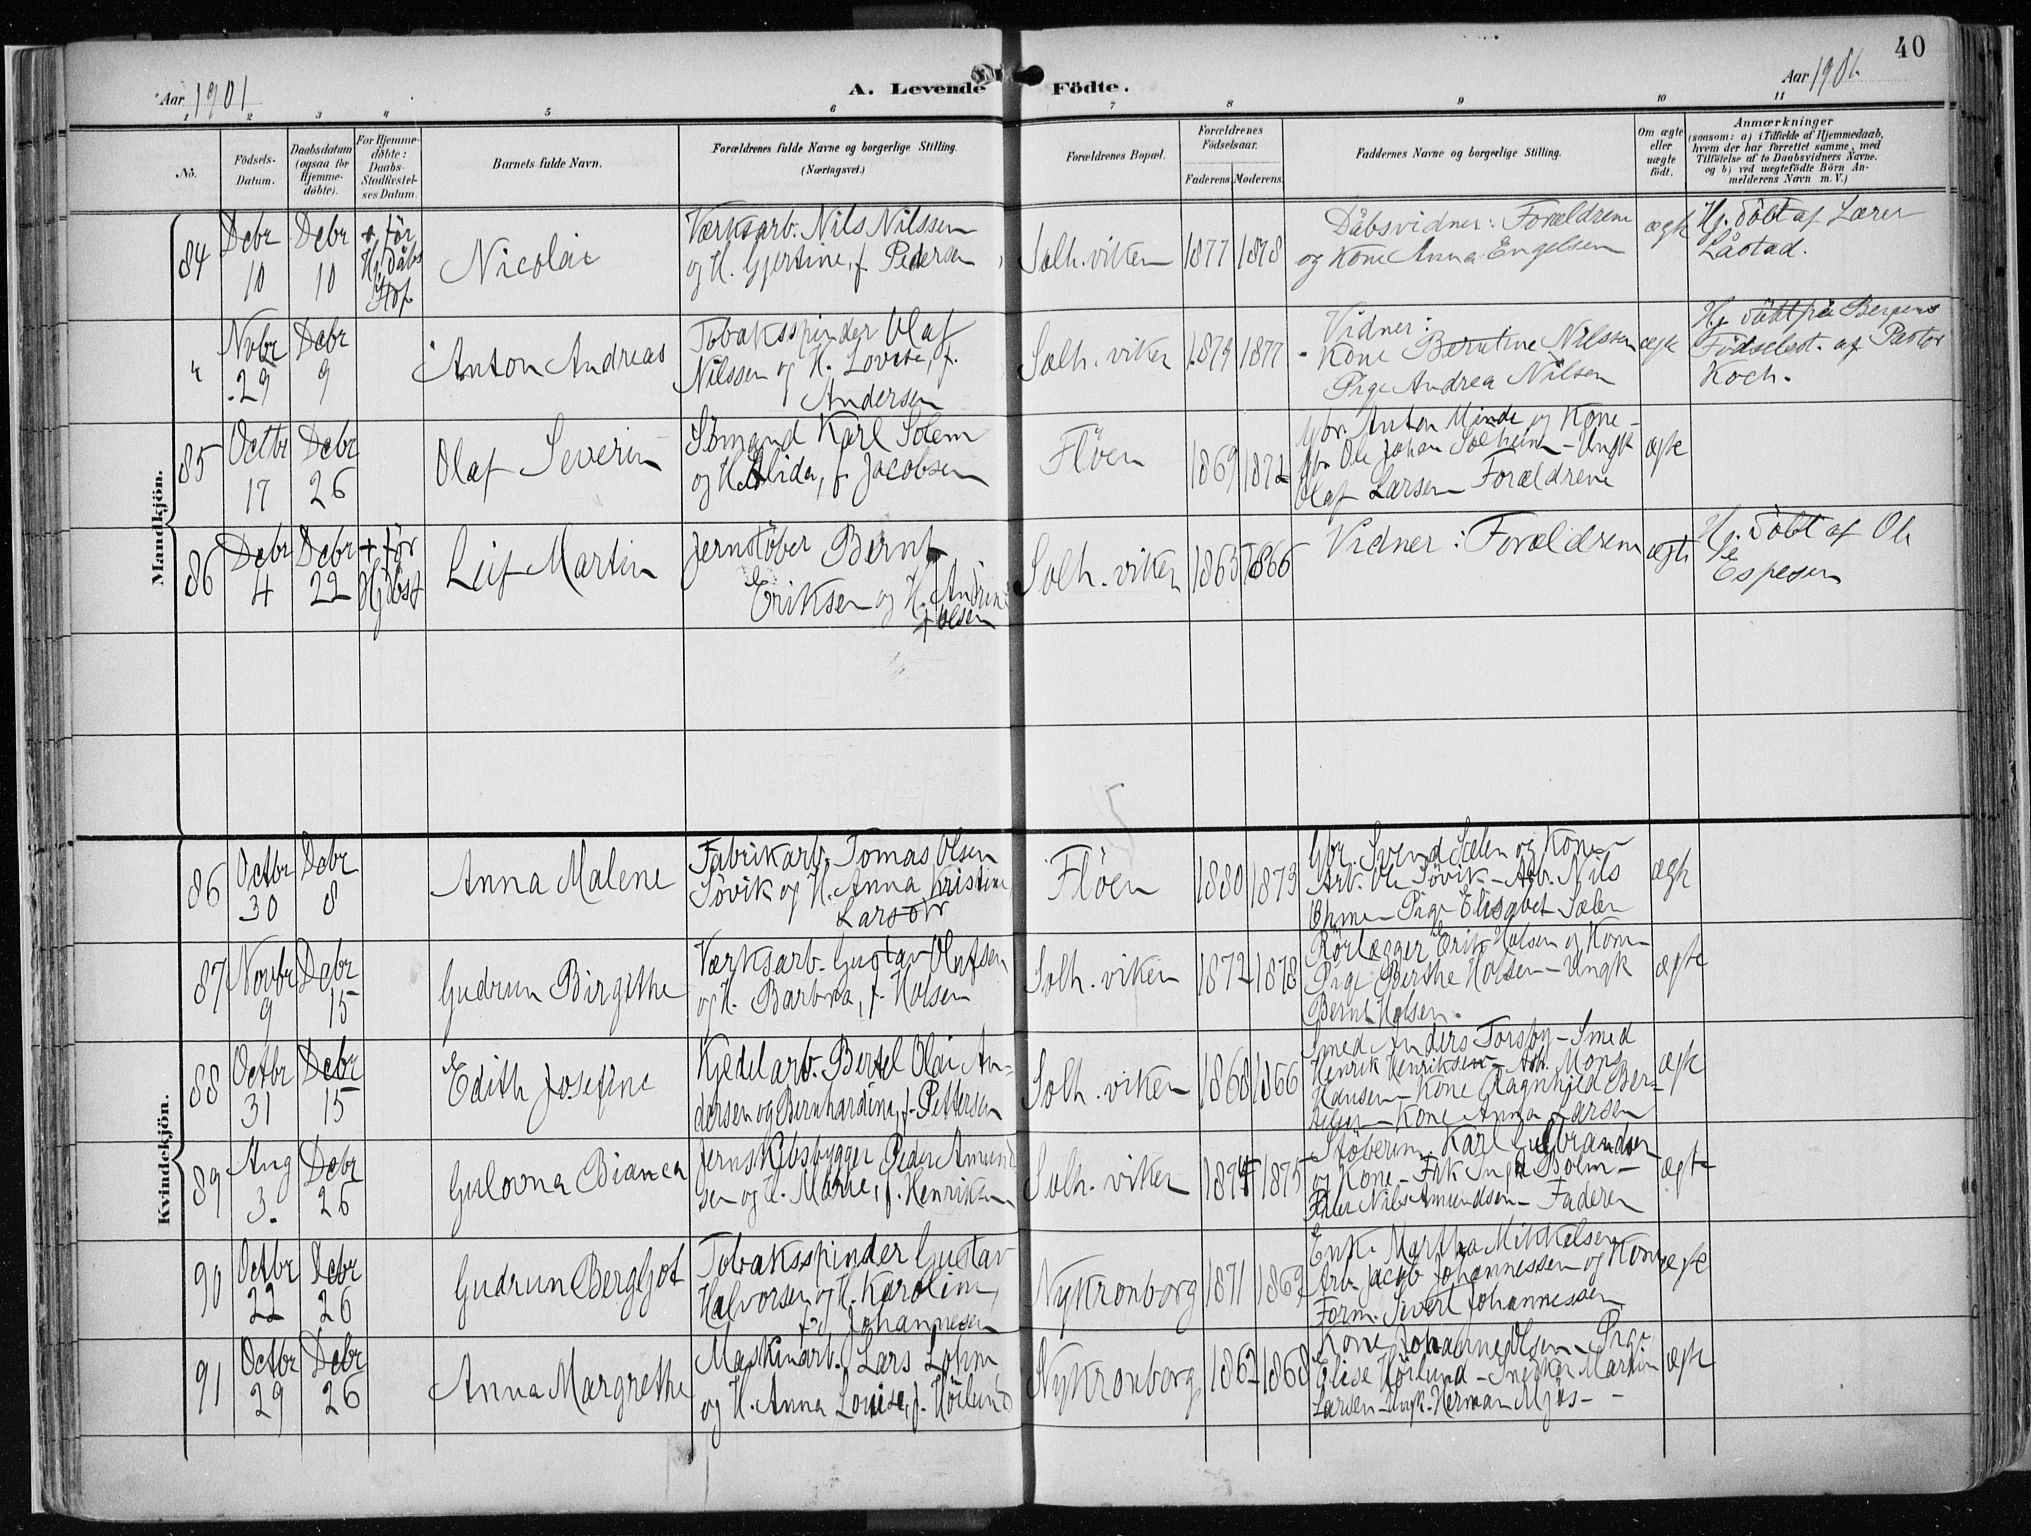 40
Aar 1901
A. Levende Födte.
Aar 1901.
1 2 3 4 5 6 7 8 9 10 11
No.
Födsels-Datum.
Daabsdatum (ogsaa for Hjemmedöbte).
For Hjemmedöbte: Daabs-Stadfæstelses Datum.
Barnets fulde Navn.
Forældrenes fulde Navne og borgerlige Stilling.
(Næringsvei.)
Forældrenes Bopæl.
Forældrenes Födselsaar.
Faderens. Moderens.
Faddernes Navne og borgerlige Stilling.
Om ægte eller uægte födt.
Anmærkninger
(saasom: a) i Tilfælde af Hjemmedaab, hvem der har forrettet samme, med Tilföielse af to Daabsvidners Navne. og b) ved uægtefödte Börn Anmelderens Navn m. V.)
Mandkjön.
84
Debr 10
Debr 10
+ för Hj. dåbs
Nicolai
Værksarb. Nils Nilssen
og H. Gjertine, f. Pedersen
Solh. viken
1877
1878
Dåbsvidner: Forældrene
og Kone Anna Engelsen
ægte
Hj. döbt af Lærer
Låstad.
"
Novbr 29
Debr 9
Anton Andreas
Tobaksspinder Olaf
Nilssen og H. Lovise, f.
Andersen
Solh. viken
1879
1877
Vidner:
Kone Berntine Nilssen
Pige Andrea Nilsen
ægte
Hj. döbt på Bergens
Födselsst. af Pastor
Koch.
85
Octbr 17
Debr 26
Olaf Severin
Sömand Karl Solem
og H. Alida, f. Jacobsen
Flöen
1869
1872
Gbr. Anton Minde og Kone -
Gbr. Ole Johan Solheim - Ungk
Olaf Larsen Forældrene
ægte
86
Debr 4
Debr 22
+ för
Leif Martin
Jernstöber Bernt
Eriksen og H. Andrine
f. Olsen
Solh. viken
1865
1866
Vidner: Forældrene
ægte
Hj. döbt af Ole
Espesen
Kvindekjön.
86
Octbr 30
Debr 8
Anna Malene
Fabrikarb. Tomas Olsen
Sövik og H. Anna Kristine
Larsdtr
Flöen
1880
1873
Gbr. Svend Sælen og Kone -
Arb. Ole Sövik - Arb. Nils
- Pige Elisabet Sælen
ægte
87
Novbr 9
Debr 15
Gudrun Birgithe
Værksarb. Gustav Olufsen
og H. Barbra, f. Holsen
Solh. viken
1872
1878
Rörlægger Erik Holsen og Kone -
Pige Berthe Holsen - Ungk
Bernt Holsen.
ægte
88
Octbr 31
Debr 15
Edith Josefine
Kjedelarb. Bertel Olai An-
dersen og Bernhardine, f. Pettersen
Solh. viken
1868
1866
Smed Anders Torsby - Smed
Henrik Henriksen - Arb. Mons
Hansen - Kone Ragnhild Ber-
- Kone Anna Larsen
ægte
89
Aug 3.
Debr 26
Gulovna Bianca
Jernskibsbygger Peder Amund
sen og H. Marie, f. Henriksen
Solh. viken
1874
1875
Karl Gulbrandsen
og Kone - Frk Inga Bolm -
Nils Amundsen - Faderen
ægte
90
Octbr 22
Debr 26
Gudrun Bergljot
Tobaksspinder Gustav
Halvorsen og H. Karoline,
f. Johannesen
Nykronborg
1871
1869
Enke Martha Mikkelsen
Arb. Jacob Johannessen og Kone
Form. Sivert Johannessen
ægte
91
Octbr 29
Debr 26
Anna Margrethe
Maskinarb. Lars Lohm
og H. Anna Louise, f. Hörlund
Nykronborg
1862
1868
Kone Johanne Olsen - Pige
Elise Hörlund - Snedker Martin
Larsen - Ungk. Herman Mjös -
ægte